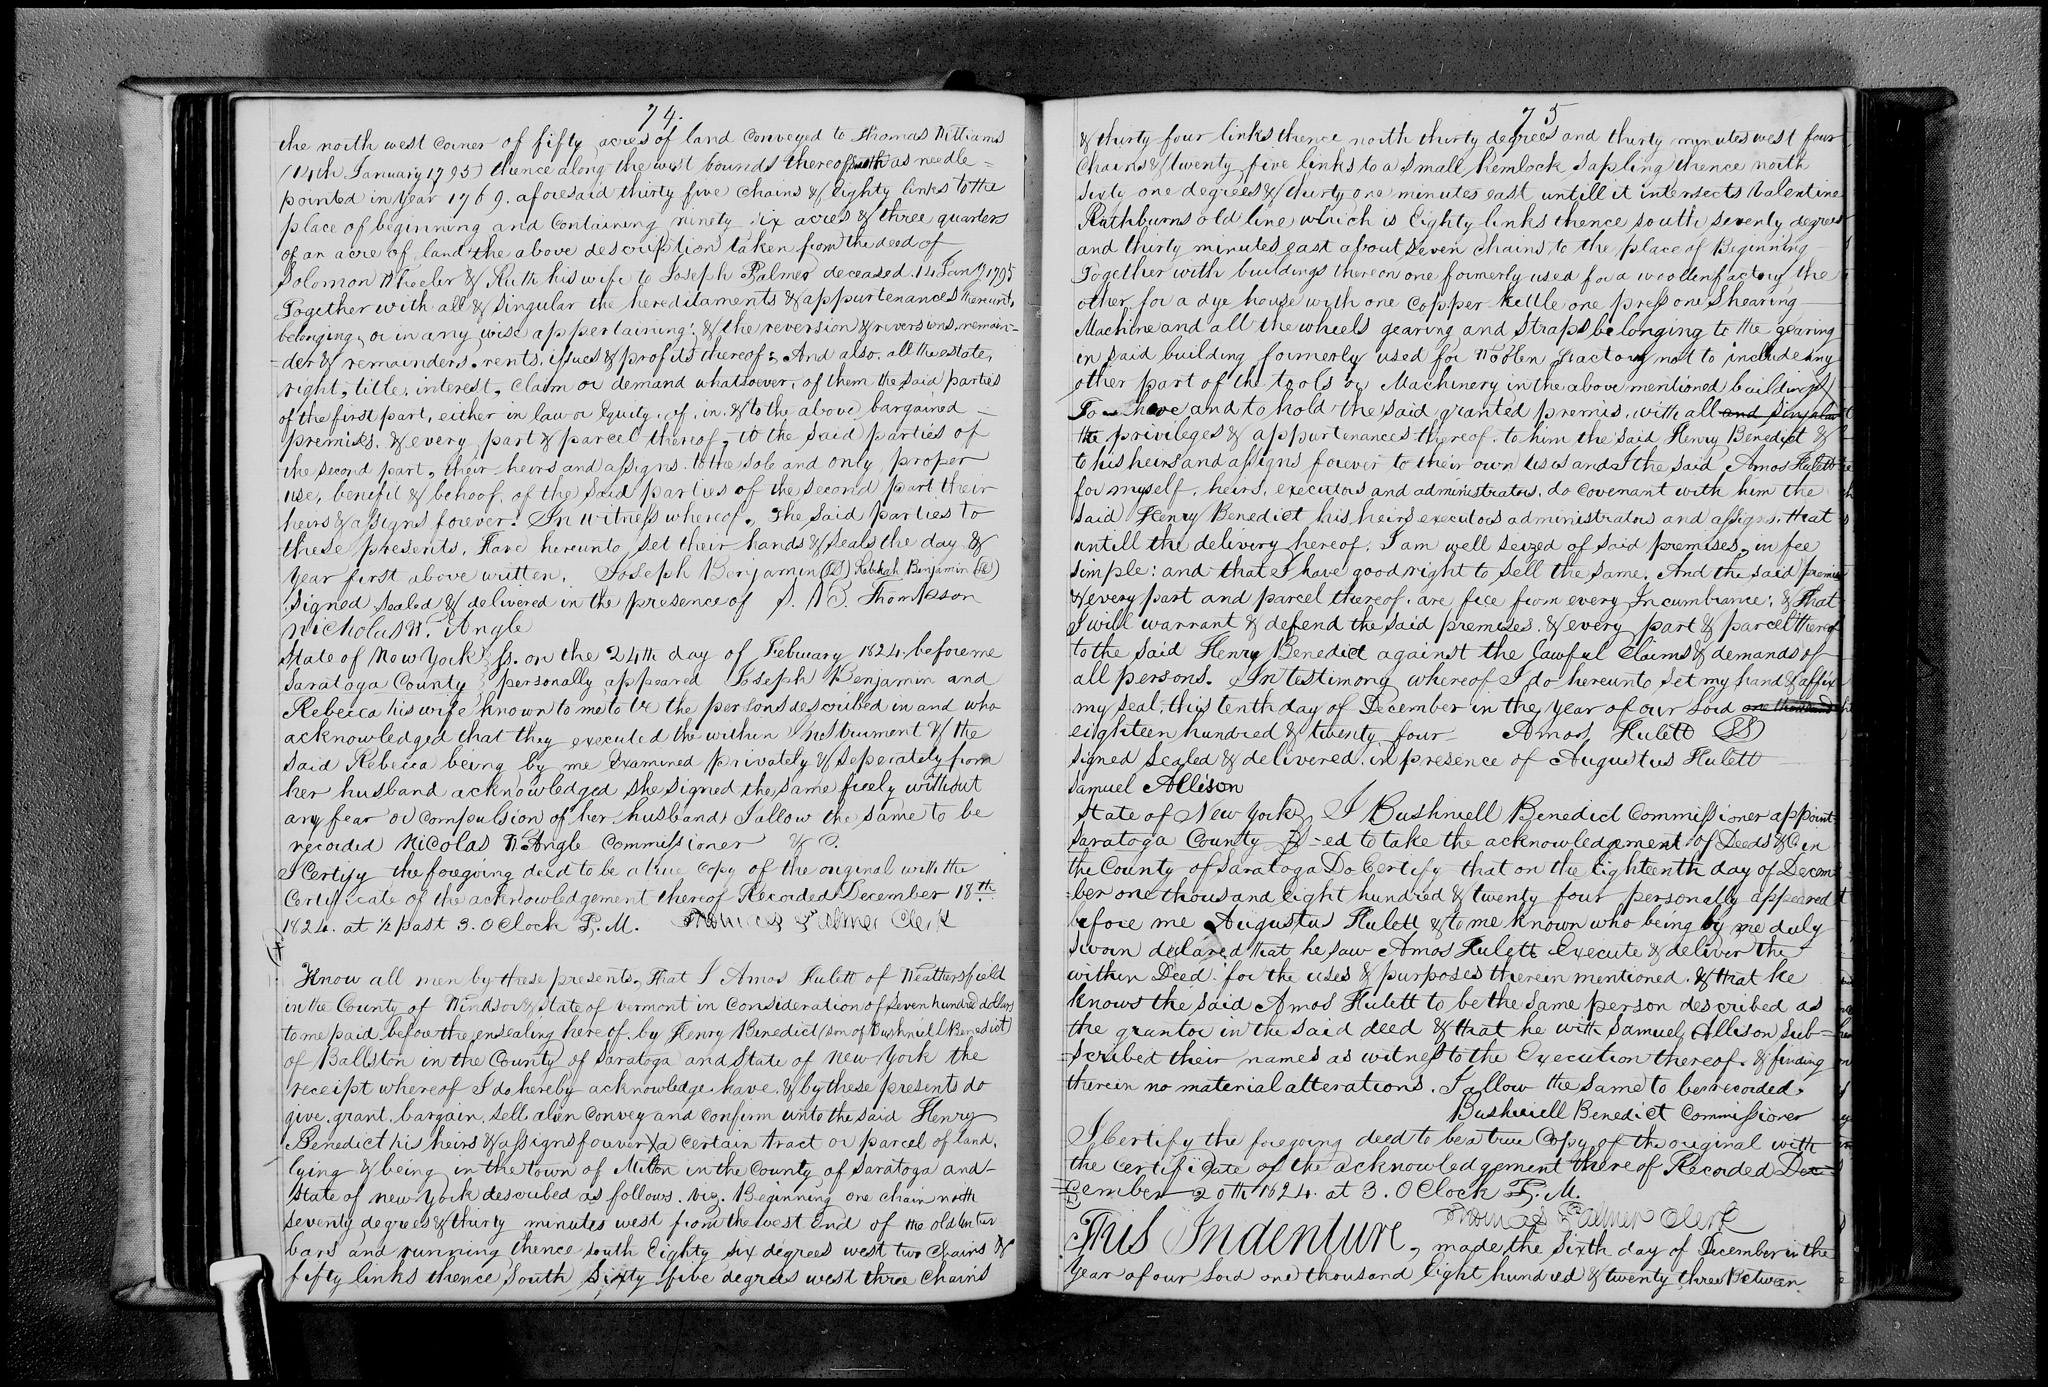 74.
the north west corner of fifty acres of land conveyed to Thomas Williams
(14th January 1795) thence along the west bounds thereof south as needle =
pointed in year 1769. aforesaid thirty five chains & Eighty links to the
place of beginning and Containing ninety six acres & three quarters
of an acre of land the above description taken from the deed of
Solomon Wheeler & Ruth his wife to Joseph Palmer deceased. 14 Jany 1795
Together with all & singular the hereditaments & appurtenances thereunto
belonging, or in any wise appertaining: & the reversion & reversions, remain=
=der & remainders. rents. issues & profits thereof; And also. all the estate,
right, title, interest, Claim or demand whatsoever, of them the said parties
of the first part, either in law or Equity, of, in, & to the above bargained
premises, & every part & parcel thereof, to the said parties of
the second part, their heirs and assigns. to the sole and only proper
use, benefit & behoof, of the said parties of the second part their
heirs & assigns forever. In witness whereof, The said parties to
these presents, Have hereunto set their hands & seals the day &
year first above written. Joseph Benjamin (LS) Rebekah Benjamin (LS)
Signed Sealed & delivered in the presence of S. B. Thompson
Nicholas W. Angle
State of New York } ss. on the 24th day of February 1824. before me
Saratoga County } personally appeared Joseph Benjamin and
Rebecca his wife known to me to be the persons described in and who
acknowledged that they executed the within Instrument & the
said Rebecca being by me Examined privately & seperately from
her husband acknowledged she signed the same freely without
any fear or compulsion of her husband, I allow the same to be
recorded Nicolas W Angle Commissioner & C.
I Certify the foregoing deed to be a true Copy of the original with the
Certificate of the acknowledgement thereof Recorded December 18th
1824. at 1/2 past 3. O Clock P. M. Thomas Palmer Clerk
Know all men by these presents, that I Amos Hulett of Weathersfield
in the County of Windsor & State of vermont in Consideration of seven hundred dollars
to me paid before the ensealing here of, by Henry Benedict (son of Bushniel Benedict)
of Ballston in the County of Saratoga and State of New York the
receipt whereof I do hereby acknowledge have. & by these presents do
give, grant, bargain, sell, alien Convey and Confirm unto the said Henry
Benedict his heirs & assigns forever) a Certain tract or parcel of land,
lying & being in the town of Milton in the County of Saratoga and
State of new York described as follows. viz. Beginning one chain north
seventy degrees & thirty minutes west from the west End of the old Center
bars and running thence south Eighty six degrees west two Chains &
fifty links thence South Sixty five degrees west three Chains
75
& thirty four links thence north thirty degrees and thirty minutes west four
Chains & twenty five links to a small hemlock sapling thence north
sixty one degrees & thirty one minutes east untill it intersects Valentine
Rathburns old line which is Eighty links thence south seventy degrees
and thirty minutes east about seven Chains, to the place of Beginning
Together with buildings thereon one formerly used for a woollenfactory the
other for a dye house with one Copper kettle one press one Shearing
Machine and all the wheels gearing and Straps belonging to the gearing
in said building formerly used for Woollen Factory not to include any
other part of the tools or Machinery in the above mentioned buildings)
To have and to hold the said granted premis, with all and singular
the privileges & appurtenances thereof, to him the said Henry Benedict &
to his heirs and assigns forever to their own uses and I the said Amos Hulett
for myself, heirs, executors and administrators, do covenant with him the
said Henry Benedict his heirs executors administrators and assigns, that
untill the delivery hereof, I am well seized of said premises, in fee
simple: and that I have good right to sell the same. And the said premises
& every part and parcel thereof. are free from every Incumbrance: & That
I will warrant & defend the said premises. & every part & parcel thereof
to the said Henry Benedict against the lawful Claims & demands of
all persons. In testimony whereof I do hereunto set my hand & affix
my seal, this tenth day of December in the year of our Lord one thousand
eighteen hundred & twenty four Amos Hulett (LS)
signed sealed & delivered in presence of Augustus Hulett
Samuel Allison
State of New York } I Bushniell Benedict Commissioner appoint
Saratoga County } ss =ed to take the acknowledgement of Deeds &C in
the County of Saratoga Do Certify that on the Eighteenth day of Decem
ber one thousand Eight hundred & twenty four personally appeared
before me Augustus Hulett & to me known who being by me duly
sworn declared that he saw Amos Hulett Execute & deliver the
within Deed for the uses & purposes therein mentioned. & that he
knows the said Amos Hulett to be the same person described as
the grantor in the said deed & that he with Samuel Allison sub=
=scribed their names as witness to the Execution thereof. & finding
therein no material alterations. I allow the same to be recorded.
Bushniell Benedict Commissioner
I Certify the foregoing deed to be a true Copy of the original with
the Certificate of the acknowledgement there of Recorded De=
=cember 20th 1824. at 3. O Clock P. M.
Thomas Palmer Clerk
This Indenture, made the sixth day of December in the
year of our Lord one thousand Eight hundred & twenty three Between